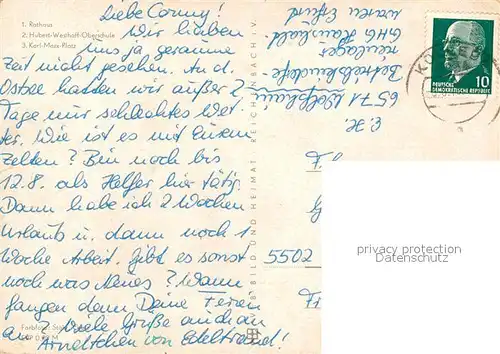 1. Rathaus
2. Hubert-Westhoff-Oberschule
3. Karl-Marx-Platz
Liebe Conny!
Wir haben
uns ja geraume
Zeit nicht gesehen. An d.
Ostsee hatten wir außer 2
Tage nur schlechtes Wet-
ter. Wie ist es mit Eurem
Zelten? Bin noch bis
12.8. als Helfer hier tätig.
Dann habe ich 2 Wochen
Urlaub u. dann noch 1
Woche Arbeit. Gibt es sonst
noch was Neues? Wann
fangen denn Deine Ferien
an? Viele Grüße auch an
Arnoldchen von Edeltraud!
BILD UND HEIMAT REICHENBACH I. V.
E. H.
6571
Betriebskinderfe
GHG Haushalt
waren Erfurt
DEUTSCHE
DEMOKRATISCHE REPUBLIK
10
5502
privacy protection
Datenschutz